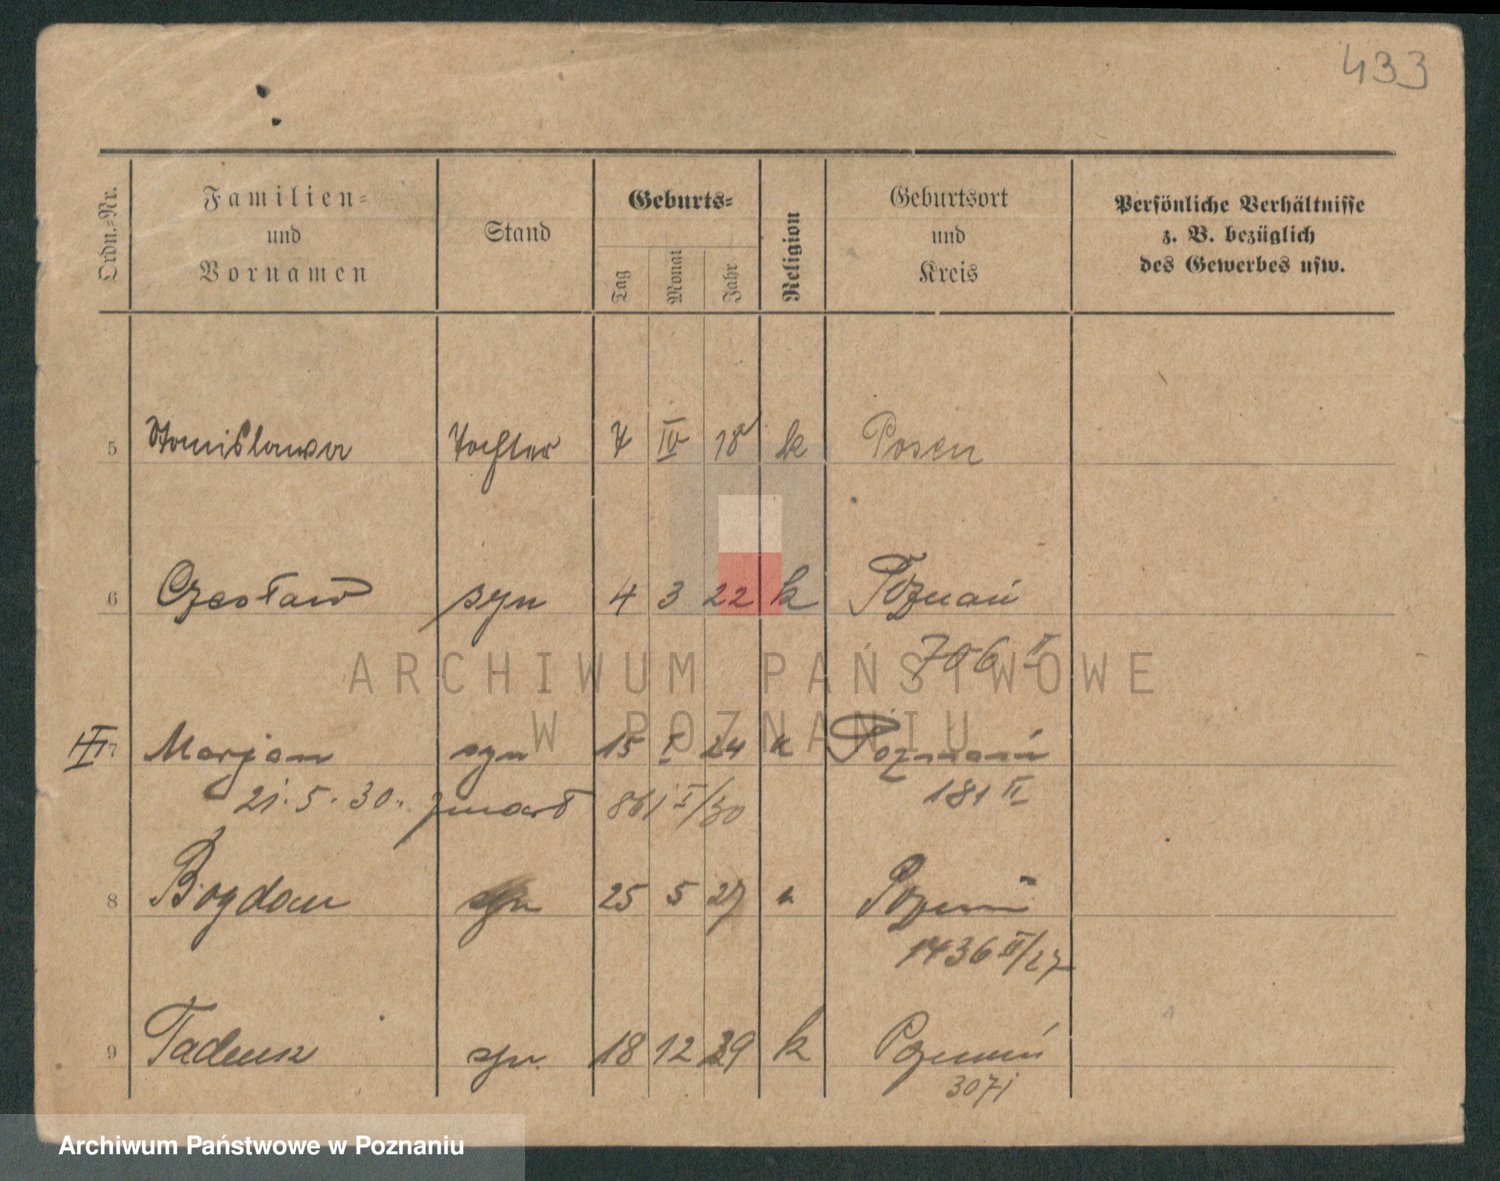 433
Ordn.-Nr.
Familien-
und
Vornamen
Stand
Geburts-
Tag
Monat
Jahr
Religion
Geburtsort
und
Kreis
Persönliche Verhältnisse
z. B. bezüglich
des Gewerbes usw.
5 Stanislawa Tochter 7 IV 18 k Posen
6 Czesław syn 4 3 22 k Poznań
706 II
ARCHIWUM PAŃSTWOWE
W POZNANIU
7 Marjan syn 15 I 24 k Poznań
181 II
21.5.30. zmarł 861 I/30
8 Bogdan syn 25 5 27 Poznań
1436 II/27
9 Tadeusz syn 18 12 29 k Poznań
3071
Archiwum Państwowe w Poznaniu